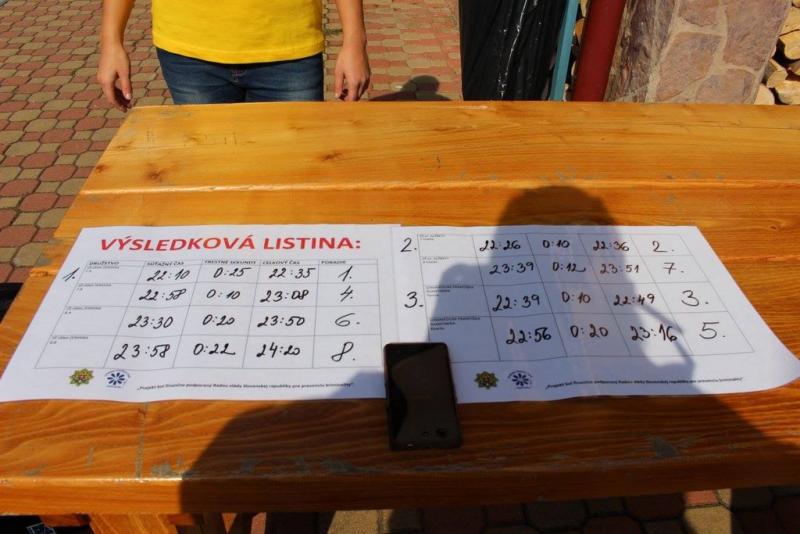 VÝSLEDKOVÁ LISTINA:
DRUŽSTVO SÚŤAŽNÝ ČAS TRESTNÉ SEKUNDY CELKOVÝ ČAS PORADIE
1. 22:10 0:25 22:35 1.
22:58 0:10 23:08 4.
23:30 0:20 23:50 6.
23:58 0:22 24:20 8.
„Projekt bol finančne podporený Radou vlády Slovenskej republiky pre prevenciu kriminality“.
2. 22:26 0:10 22:36 2.
23:39 0:12 23:51 7.
3. 22:39 0:10 22:49 3.
22:56 0:20 23:16 5.
„Projekt bol finančne podporený Radou vlády Slovenskej republiky pre prevenciu kriminality“.